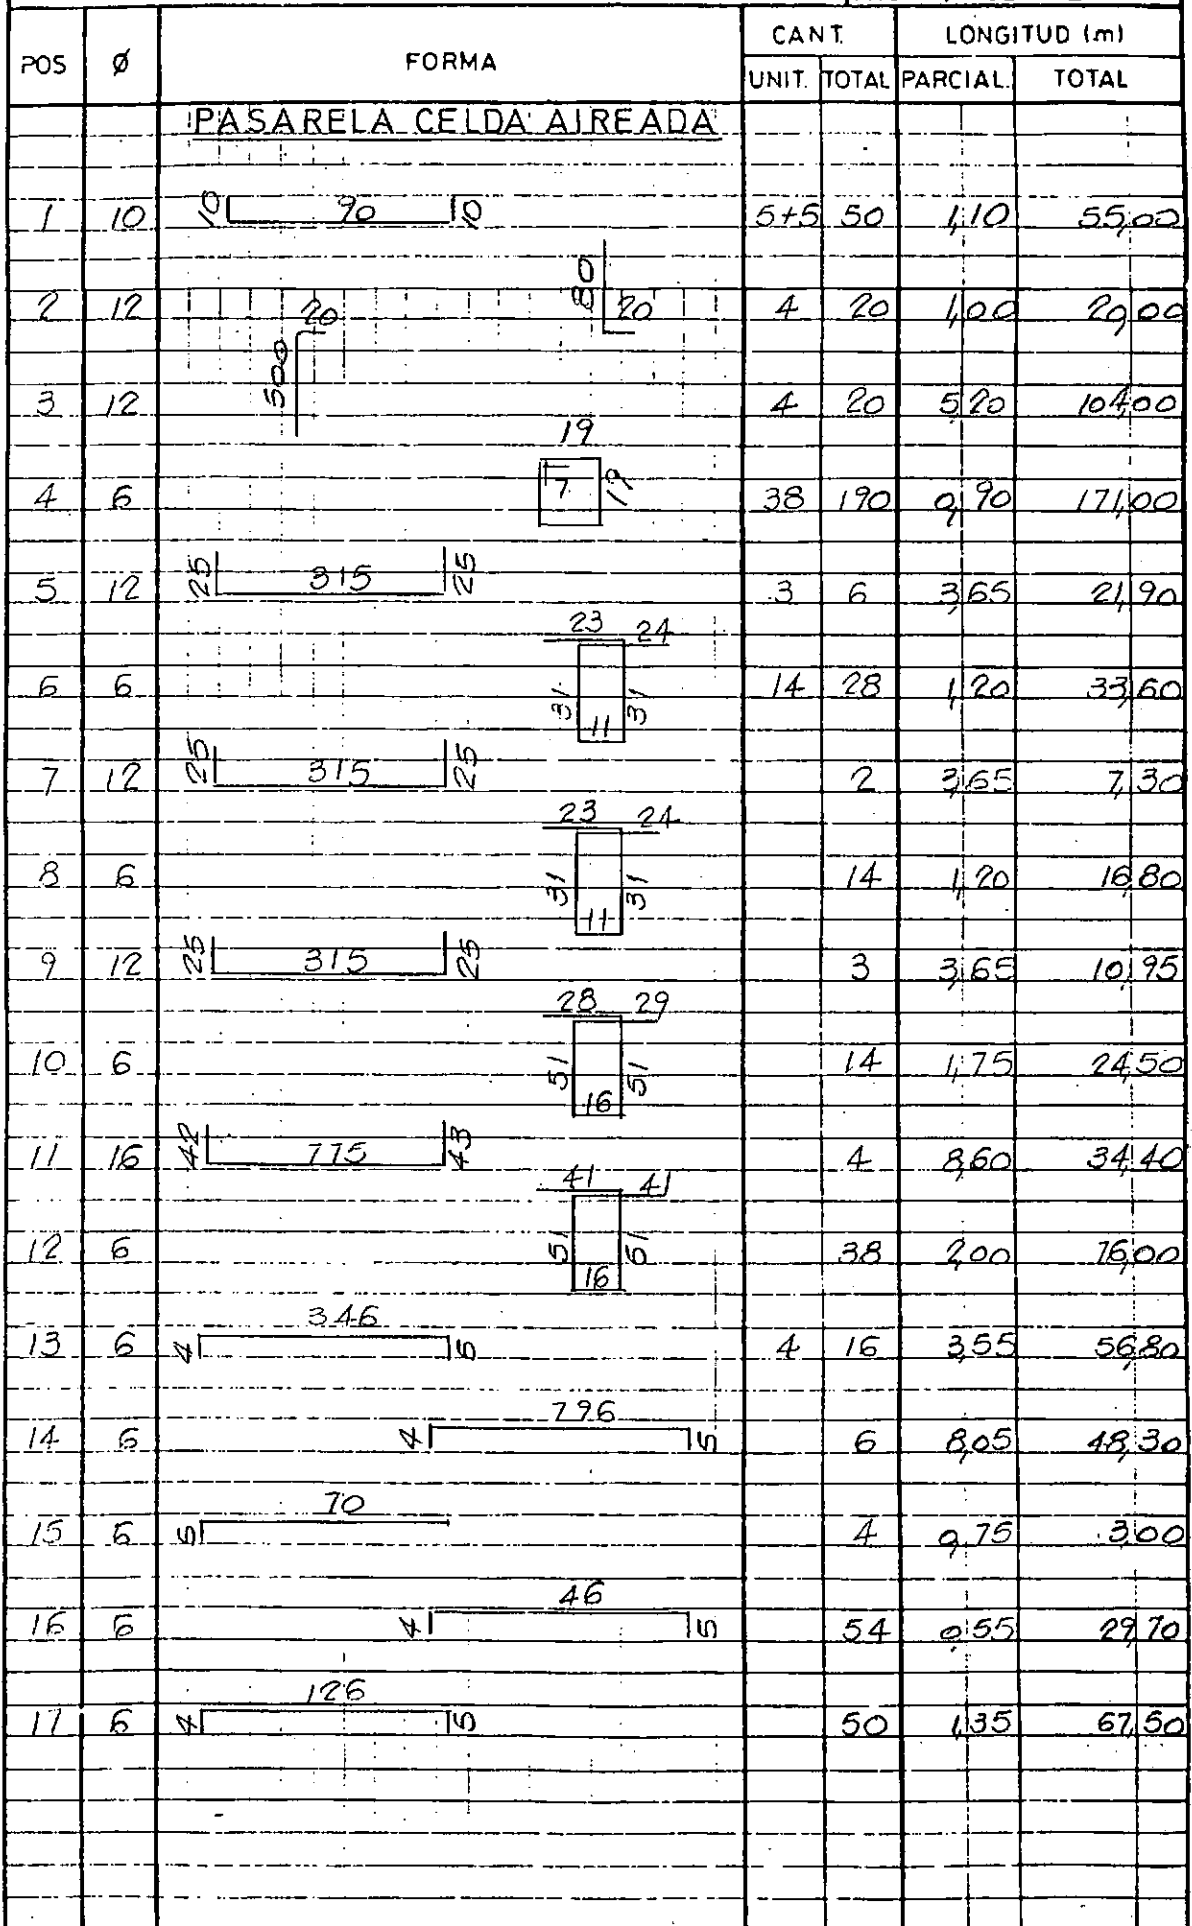 POS Ø FORMA CANT. LONGITUD (m)
UNIT. TOTAL PARCIAL. TOTAL
PASARELA CELDA AIREADA
1 10 10 90 10 5+5 50 1,10 55,00
2 12 80 20 4 20 1,00 20,00
3 12 500 20 4 20 5,20 104,00
4 6 19 7 19 38 190 0,90 171,00
5 12 25 315 25 3 6 3,65 21,90
6 6 23 24 31 11 31 14 28 1,20 33,60
7 12 25 315 25 2 3,65 7,30
8 6 23 24 31 11 31 14 1,20 16,80
9 12 25 315 25 3 3,65 10,95
10 6 28 29 51 16 51 14 1,75 24,50
11 16 42 775 43 4 8,60 34,40
12 6 41 41 51 16 51 38 2,00 76,00
13 6 4 346 5 4 16 3,55 56,80
14 6 4 796 5 6 8,05 48,30
15 6 5 70 4 0,75 3,00
16 6 4 46 5 54 0,55 29,70
17 6 4 126 5 50 1,35 67,50